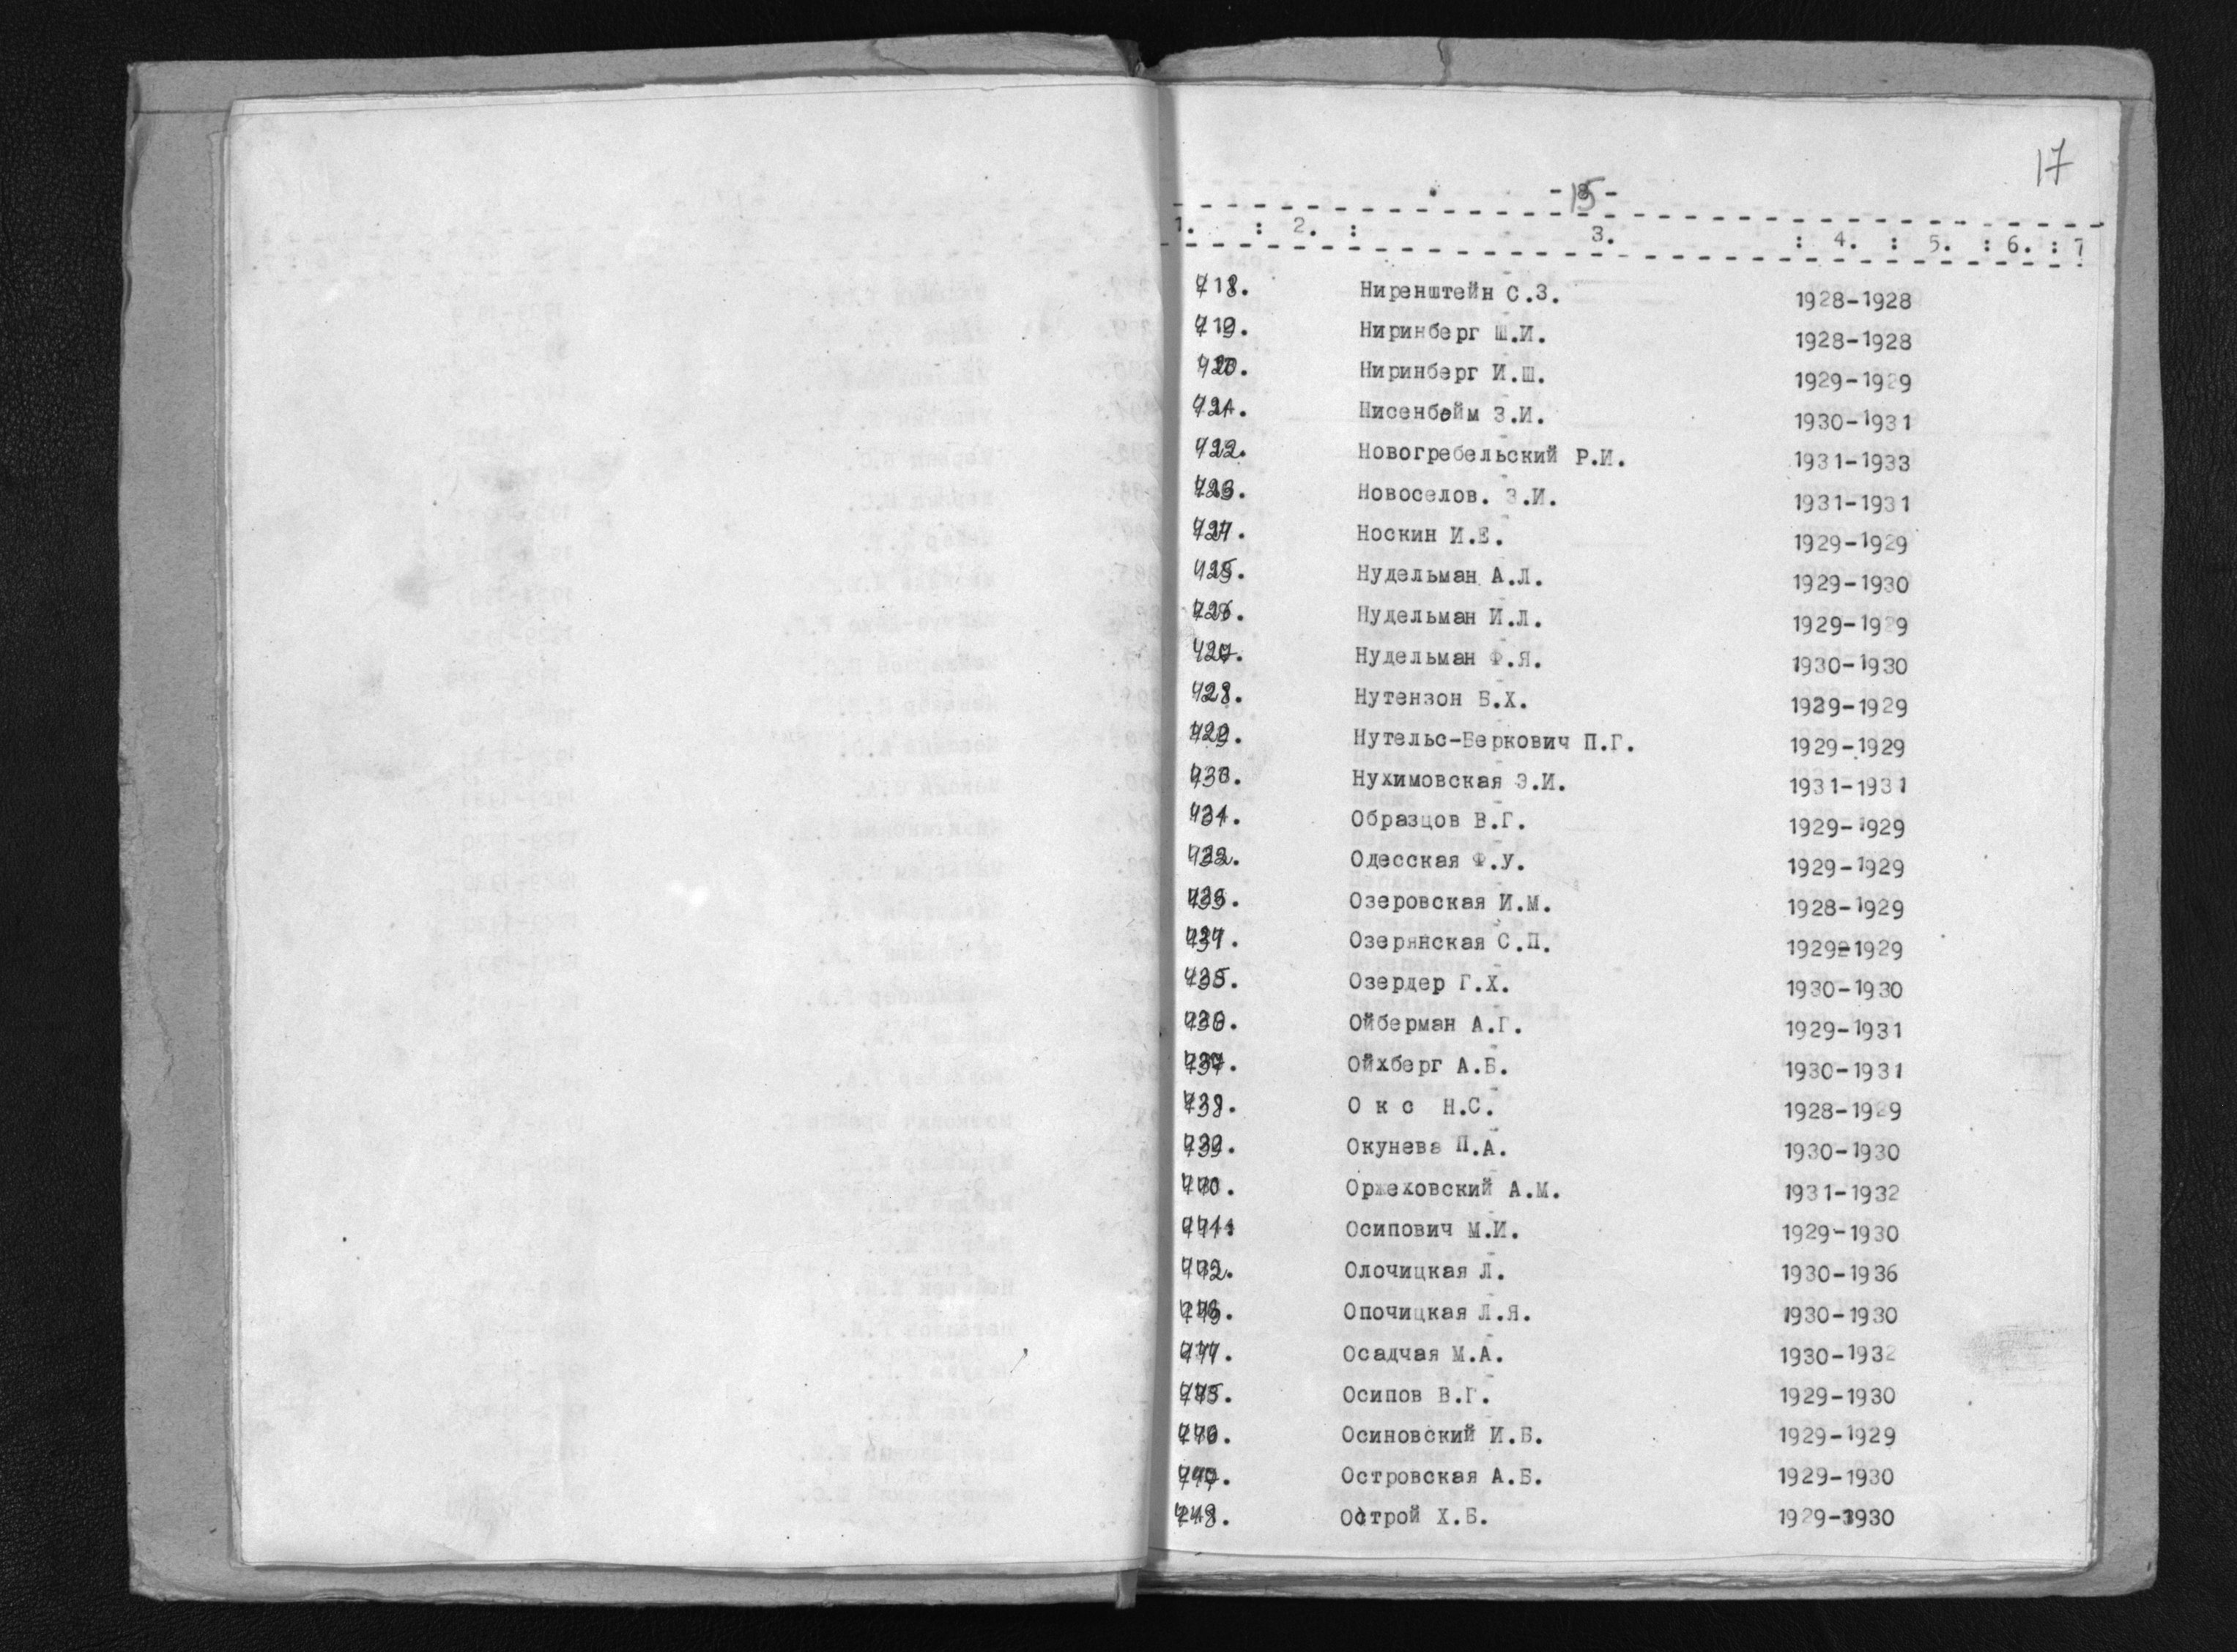 17
15
1. : 2. : 3. : 4. : 5. : 6. : 7
418. Ниренштейн С.З. 1928-1928
419. Ниринберг Ш.И. 1928-1928
420. Ниринберг И.Ш. 1929-1929
421. Нисенбойм З.И. 1930-1931
422. Новогребельский Р.И. 1931-1933
423. Новоселов. З.И. 1931-1931
424. Носкин И.Е. 1929-1929
425. Нудельман А.Л. 1929-1930
426. Нудельман И.Л. 1929-1929
427. Нудельман Ф.Я. 1930-1930
428. Нутензон Б.Х. 1929-1929
429. Нутельс-Беркович П.Г. 1929-1929
430. Нухимовская Э.И. 1931-1931
431. Образцов В.Г. 1929-1929
432. Одесская Ф.У. 1929-1929
433. Озеровская И.М. 1928-1929
434. Озерянская С.П. 1929-1929
435. Озердер Г.Х. 1930-1930
436. Ойберман А.Г. 1929-1931
437. Ойхберг А.Б. 1930-1931
438. О к с Н.С. 1928-1929
439. Окунева П.А. 1930-1930
440. Оржеховский А.М. 1931-1932
441. Осипович М.И. 1929-1930
442. Олочицкая Л. 1930-1936
443. Опочицкая Л.Я. 1930-1930
444. Осадчая М.А. 1930-1932
445. Осипов В.Г. 1929-1930
446. Осиновский И.Б. 1929-1929
447. Островская А.Б. 1929-1930
448. Острой Х.Б. 1929-1930